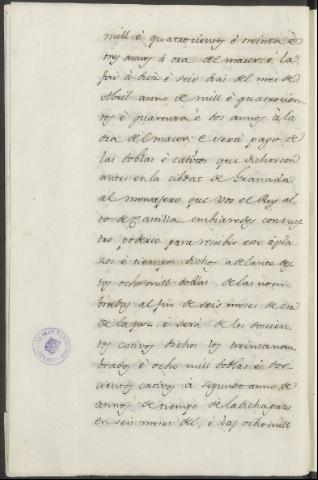 mill è quatrocientos è treinta è
tres annos à ora del macer: è la
fin à diez è seis dias del mes de
Abril anno de mill è quatrocien
tos è quarenta è dos annos à la
ora del macer: e será pago de
las doblas è cativos que dichos son
antes en la cibdat de Granada
al mensajero que vos el Rey al
to de Castilla embiaredes con vues
tro poderio para rescebir con à pla
zos è tiempos dichos adelante de
los ocho mill doblas de las nom
bradas al fin de seis meses de era
de la paz è será de los docien
tos cativos dichos los treinta nom
brados è ocho mill doblas è dos
cientos cativos à segundo anno de
annos de tiempo de la dicha paz
en seis meses del, è las ocho mill